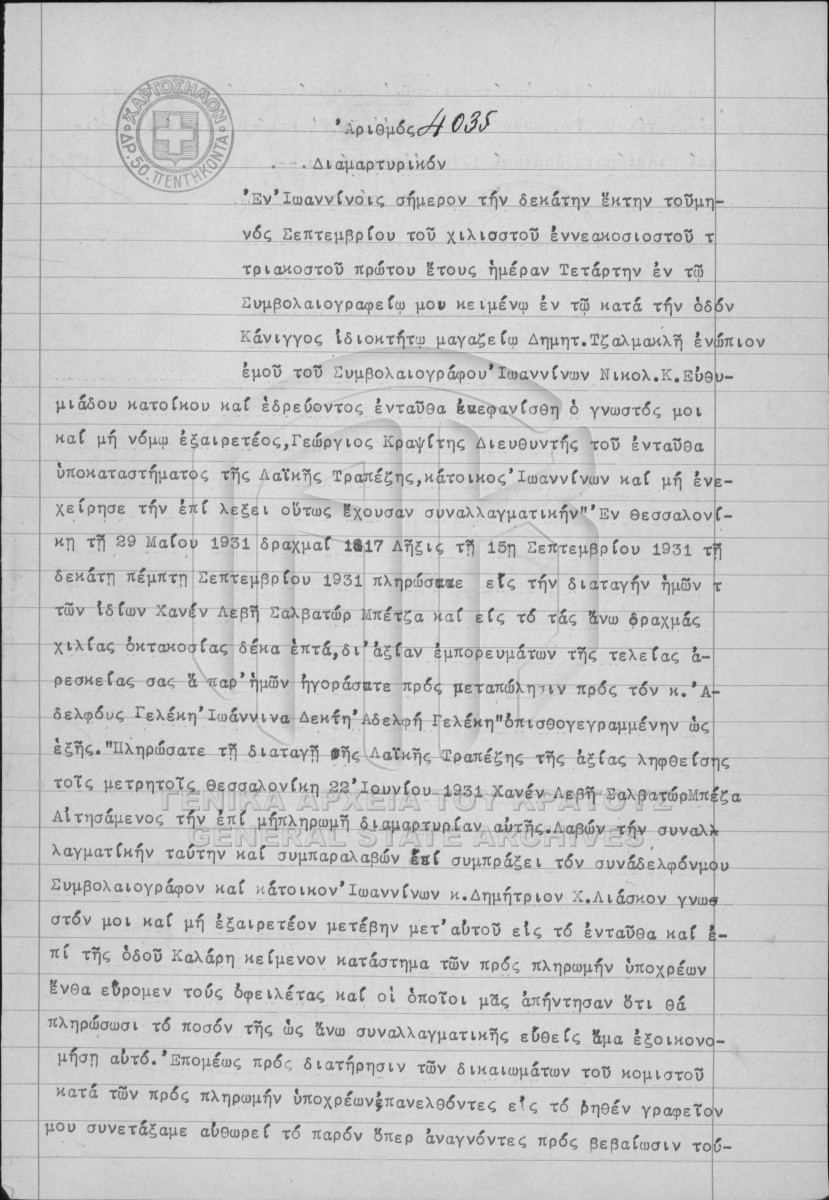 ΧΑΡΤΟΣΗΜΟΝ
ΔΡ. 50. ΠΕΝΤΗΚΟΝΤΑ
Ἀριθμός 4035
Διαμαρτυρικόν
Ἐν Ἰωαννίνοις σήμερον τήν δεκάτην ἕκτην τοῦμη-
νός Σεπτεμβρίου τοῦ χιλισστοῦ ἐννεακοσιοστοῦ τ
τριακοστοῦ πρώτου ἔτους ἡμέραν Τετάρτην ἐν τῷ
Συμβολαιογραφείῳ μου κειμένῳ ἐν τῷ κατά τήν ὁδόν
Κάνιγγος ἰδιοκτήτῳ μαγαζείῳ Δημητ.Τζαλμακλῆ ἐνώπιον
ἐμοῦ τοῦ Συμβολαιογράφου Ἰωαννίνων Νικολ.Κ.Εὐθυ-
μιάδου κατοίκου καί ἑδρεύοντος ἐνταῦθα ἐνεφανίσθη ὁ γνωστός μοι
καί μή νόμῳ ἐξαιρετέος,Γεώργιος Κραψίτης Διευθυντής τοῦ ἐνταῦθα
ὑποκαταστήματος τῆς Λαϊκῆς Τραπέζης,κάτοικος Ἰωαννίνων καί μή ἐνε-
χείρησε τήν ἐπί λεξει οὕτως ἔχουσαν συναλλαγματικήν"Ἐν Θεσσαλονί-
κῃ τῇ 29 Μαΐου 1931 δραχμαί 1817 Λῆξις τῇ 15ῃ Σεπτεμβρίου 1931 τῇ
δεκάτῃ πέμπτῃ Σεπτεμβρίου 1931 πληρώσατε εἰς τήν διαταγήν ἡμῶν τ
τῶν ἰδίων Χανέν Λεβῆ Σαλβατώρ Μπέτζα καί εἰς τό τάς ἄνω δραχμάς
χιλίας ὀκτακοσίας δέκα ἑπτά,δι'ἀξίαν ἐμπορευμάτων τῆς τελείας ἀ-
ρεσκείας σας ἅ παρ'ἡμῶν ἠγοράσατε πρός μεταπώλησιν πρός τόν κ.Ἀ-
δελφούς Γελέκη Ἰωάννινα Δεκτή Ἀδελφή Γελέκη"ὀπισθογεγραμμένην ὡς
ἑξῆς."Πληρώσατε τῇ διαταγῇ τῆς Λαϊκῆς Τραπέζης τῆς ἀξίας ληφθείσης
τοῖς μετρητοῖς Θεσσαλονίκη 22 Ἰουνίου 1931 Χανέν Λεβῆ ΣαλβατώρΜπέζα
Αἰτησάμενος τήν ἐπί μήπληρωμῇ διαμαρτυρίαν αὐτῆς.Λαβών τήν συναλλ
λαγματικήν ταύτην καί συμπαραλαβών ἐπί συμπράξει τόν συνάδελφόνμου
Συμβολαιογράφον καί κάτοικον Ἰωαννίνων κ.Δημήτριον Χ.Λιάσκον γνωσ
στόν μοι καί μή ἐξαιρετέον μετέβην μετ'αὐτοῦ εἰς τό ἐνταῦθα καί ἐ-
πί τῆς ὁδοῦ Καλάρη κείμενον κατάστημα τῶν πρός πληρωμήν ὑποχρέων
ἔνθα εὕρομεν τούς ὀφειλέτας καί οἱ ὁποῖοι μᾶς ἀπήντησαν ὅτι θά
πληρώσωσι τό ποσόν τῆς ὡς ἄνω συναλλαγματικῆς εὐθεῖς ἅμα ἐξοικονο-
μήσῃ αὐτό.Ἑπομέως πρός διατήρησιν τῶν δικαιωμάτων τοῦ κομιστοῦ
κατά τῶν πρός πληρωμήν ὑποχρέων,ἐπανελθόντες εἰς τό ῥηθέν γραφεῖον
μου συνετάξαμε αὐθωρεί τό παρόν ὅπερ ἀναγνόντες πρός βεβαίωσιν τού-
ΓΕΝΙΚΑ ΑΡΧΕΙΑ ΤΟΥ ΚΡΑΤΟΥΣ
GENERAL STATE ARCHIVES